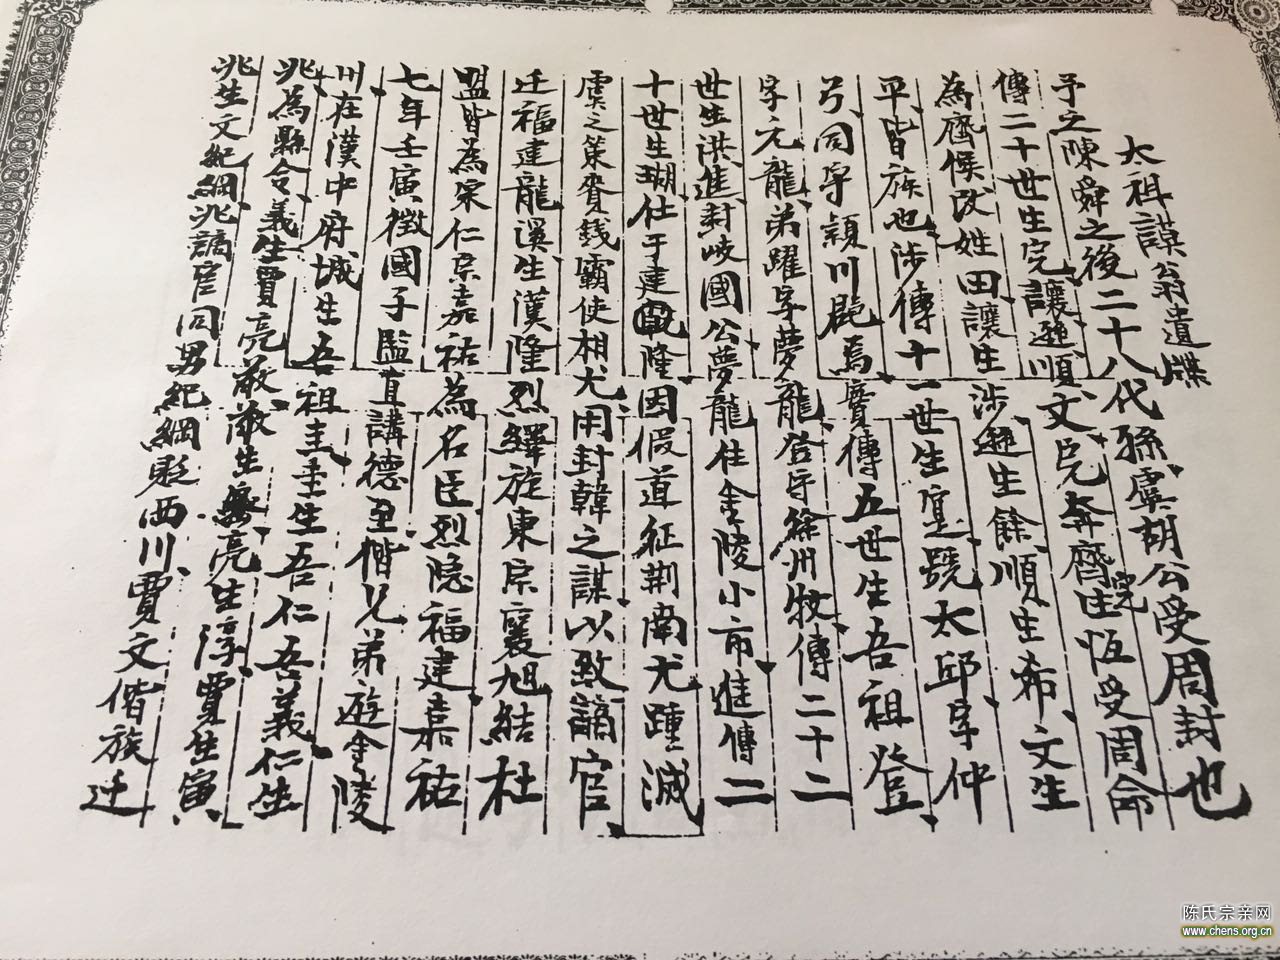 太祖謨翁遺牒
予之陳舜之後二十八代孫虞胡公受周封也
傳二十世生完讓遜順文兄奔齊完生恆受周命
為齊侯改姓田讓生涉遜生餘順生希文生
平皆族也涉傳十一世生寔號太邱字仲
弓同字穎川毘焉實傳五世生吾祖登
字元龍弟躍字夢龍登守徐州牧傳二十二
世生洪進封岐國公夢龍住金陵小市進傳二
十世生瑚仕于建甌隆因假道征荆南尤踵滅
虞之策賚錢霸使相尤用封韓之謀以致謫官
迁福建龍溪生漢隆烈繹旋東宗襄旭結杜
盟皆為宋仁宗嘉祐為名臣烈隐福建嘉祐
七年壬寅徵國子監直講德丑偕兄弟遊金陵
川在漢中府城生吾祖圭圭生吾仁吾義仁生
兆為縣令義生賈亮敬敬生亮生淳賈生寅
兆生文紀綱兆謫官同男紀綱敗西川賈文偕族迁
陈氏宗亲网
www.chens.org.cn